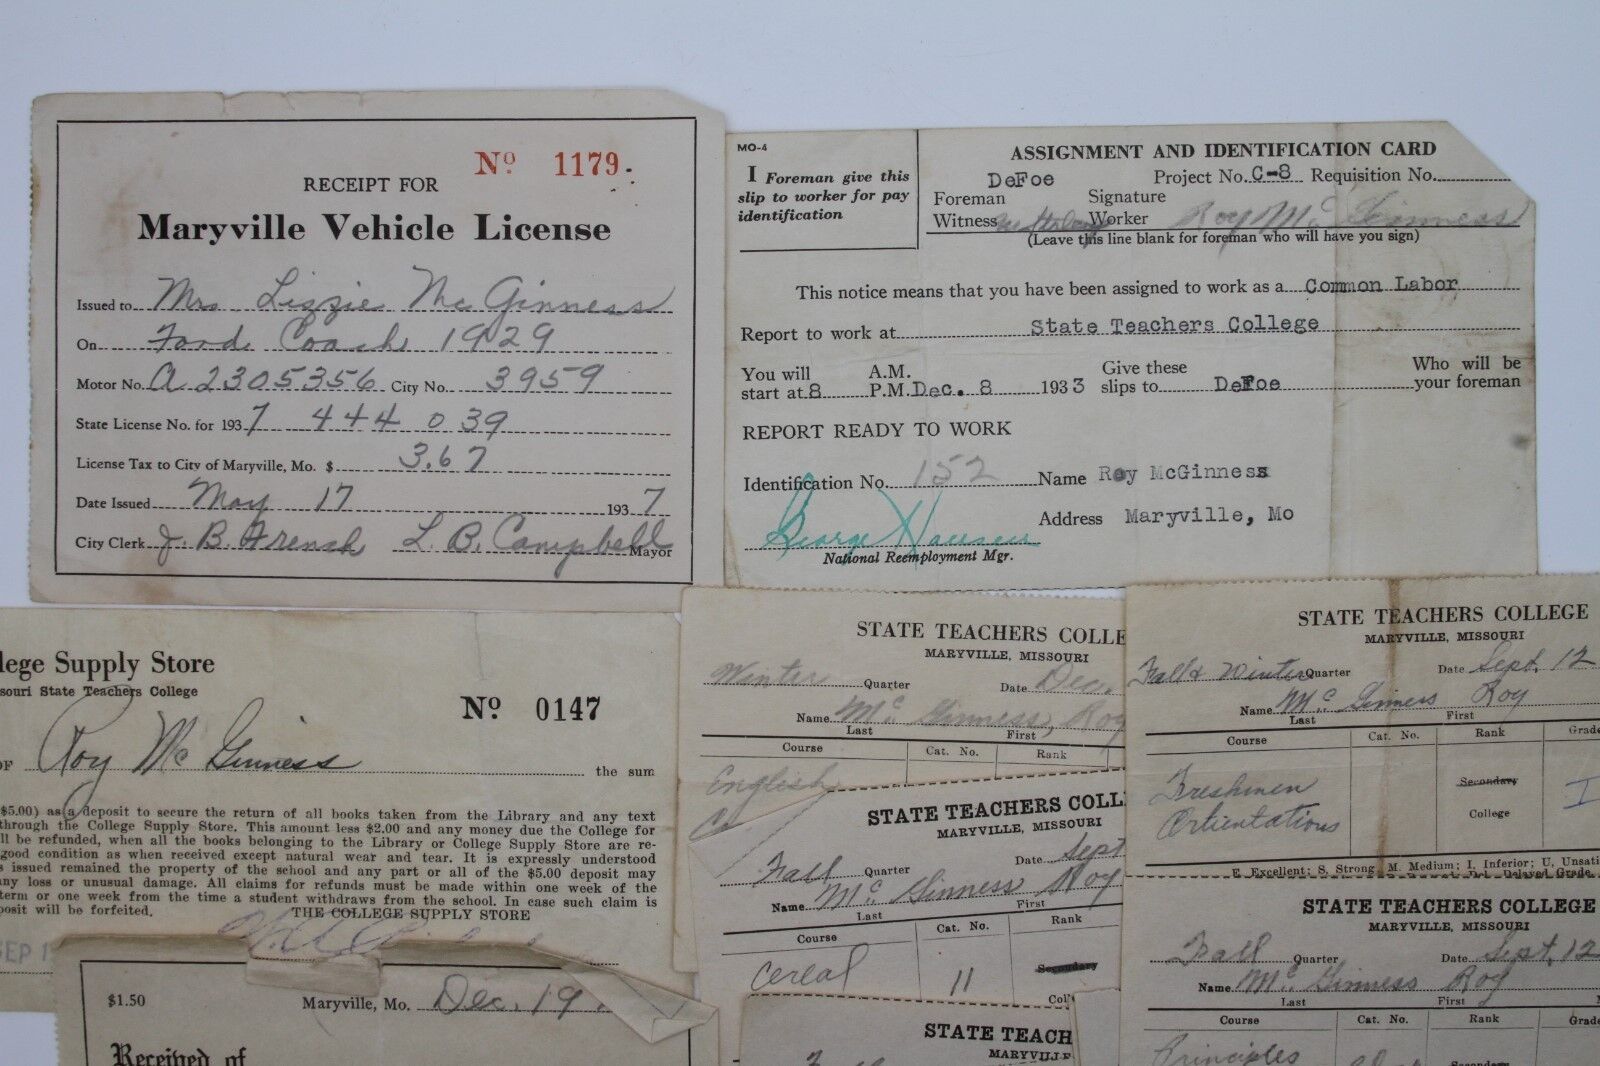 Nº 1179.
RECEIPT FOR
Maryville Vehicle License
Issued to Mrs. Lizzie McGinness
On Ford Coach 1929
Motor No. A 2305356 City No. 3959
State License No. for 1937 444 039
License Tax to City of Maryville, Mo. $ 3.67
Date Issued May 17 1937
City Clerk J. B. French L. B. Campbell Mayor
MO-4
I Foreman give this
slip to worker for pay
identification
ASSIGNMENT AND IDENTIFICATION CARD
DeFoe Project No. C-8 Requisition No.
Foreman Signature
Witness Worker Roy McGinness
(Leave this line blank for foreman who will have you sign)
This notice means that you have been assigned to work as a Common Labor
Report to work at State Teachers College
You will A.M. Give these Who will be
start at 8 P.M. Dec. 8 1933 slips to DeFoe your foreman
REPORT READY TO WORK
Identification No. 152 Name Roy McGinness
George
Address Maryville, Mo
National Reemployment Mgr.
lege Supply Store
souri State Teachers College
Nº 0147
OF Roy McGinness the sum
$5.00) as a deposit to secure the return of all books taken from the Library and any text
through the College Supply Store. This amount less $2.00 and any money due the College for
ll be refunded, when all the books belonging to the Library or College Supply Store are re-
good condition as when received except natural wear and tear. It is expressly understood
s issued remained the property of the school and any part or all of the $5.00 deposit may
any loss or unusual damage. All claims for refunds must be made within one week of the
term or one week from the time a student withdraws from the school. In case such claim is
posit will be forfeited. THE COLLEGE SUPPLY STORE
SEP 1
$1.50 Maryville, Mo. Dec. 19
Received of
STATE TEACHERS COLLE
MARYVILLE, MISSOURI
Winter Quarter Date Dec.
Name McGinness, Roy
Last First
Course Cat. No. Rank
English
STATE TEACHERS COLL
MARYVILLE, MISSOURI
Fall Quarter Date Sept
Name McGinness Roy
Last First
Course Cat. No. Rank
Cereal 11 Secondary
Col
STATE TEACH
MARYVILLE
STATE TEACHERS COLLEGE
MARYVILLE, MISSOURI
Fall & Winter Quarter Date Sept. 12
Name McGinness Roy
Last First
Course Cat. No. Rank Grade
Freshmen Secondary I
Orientations College
E, Excellent; S, Strong; M, Medium; I, Inferior; U, Unsati
Del. Delayed Grade.
STATE TEACHERS COLLEGE
MARYVILLE, MISSOURI
Fall Quarter Date Sept. 12
Name McGinness Roy
Last First
Course Cat. No. Rank Grade
Principles Secondary